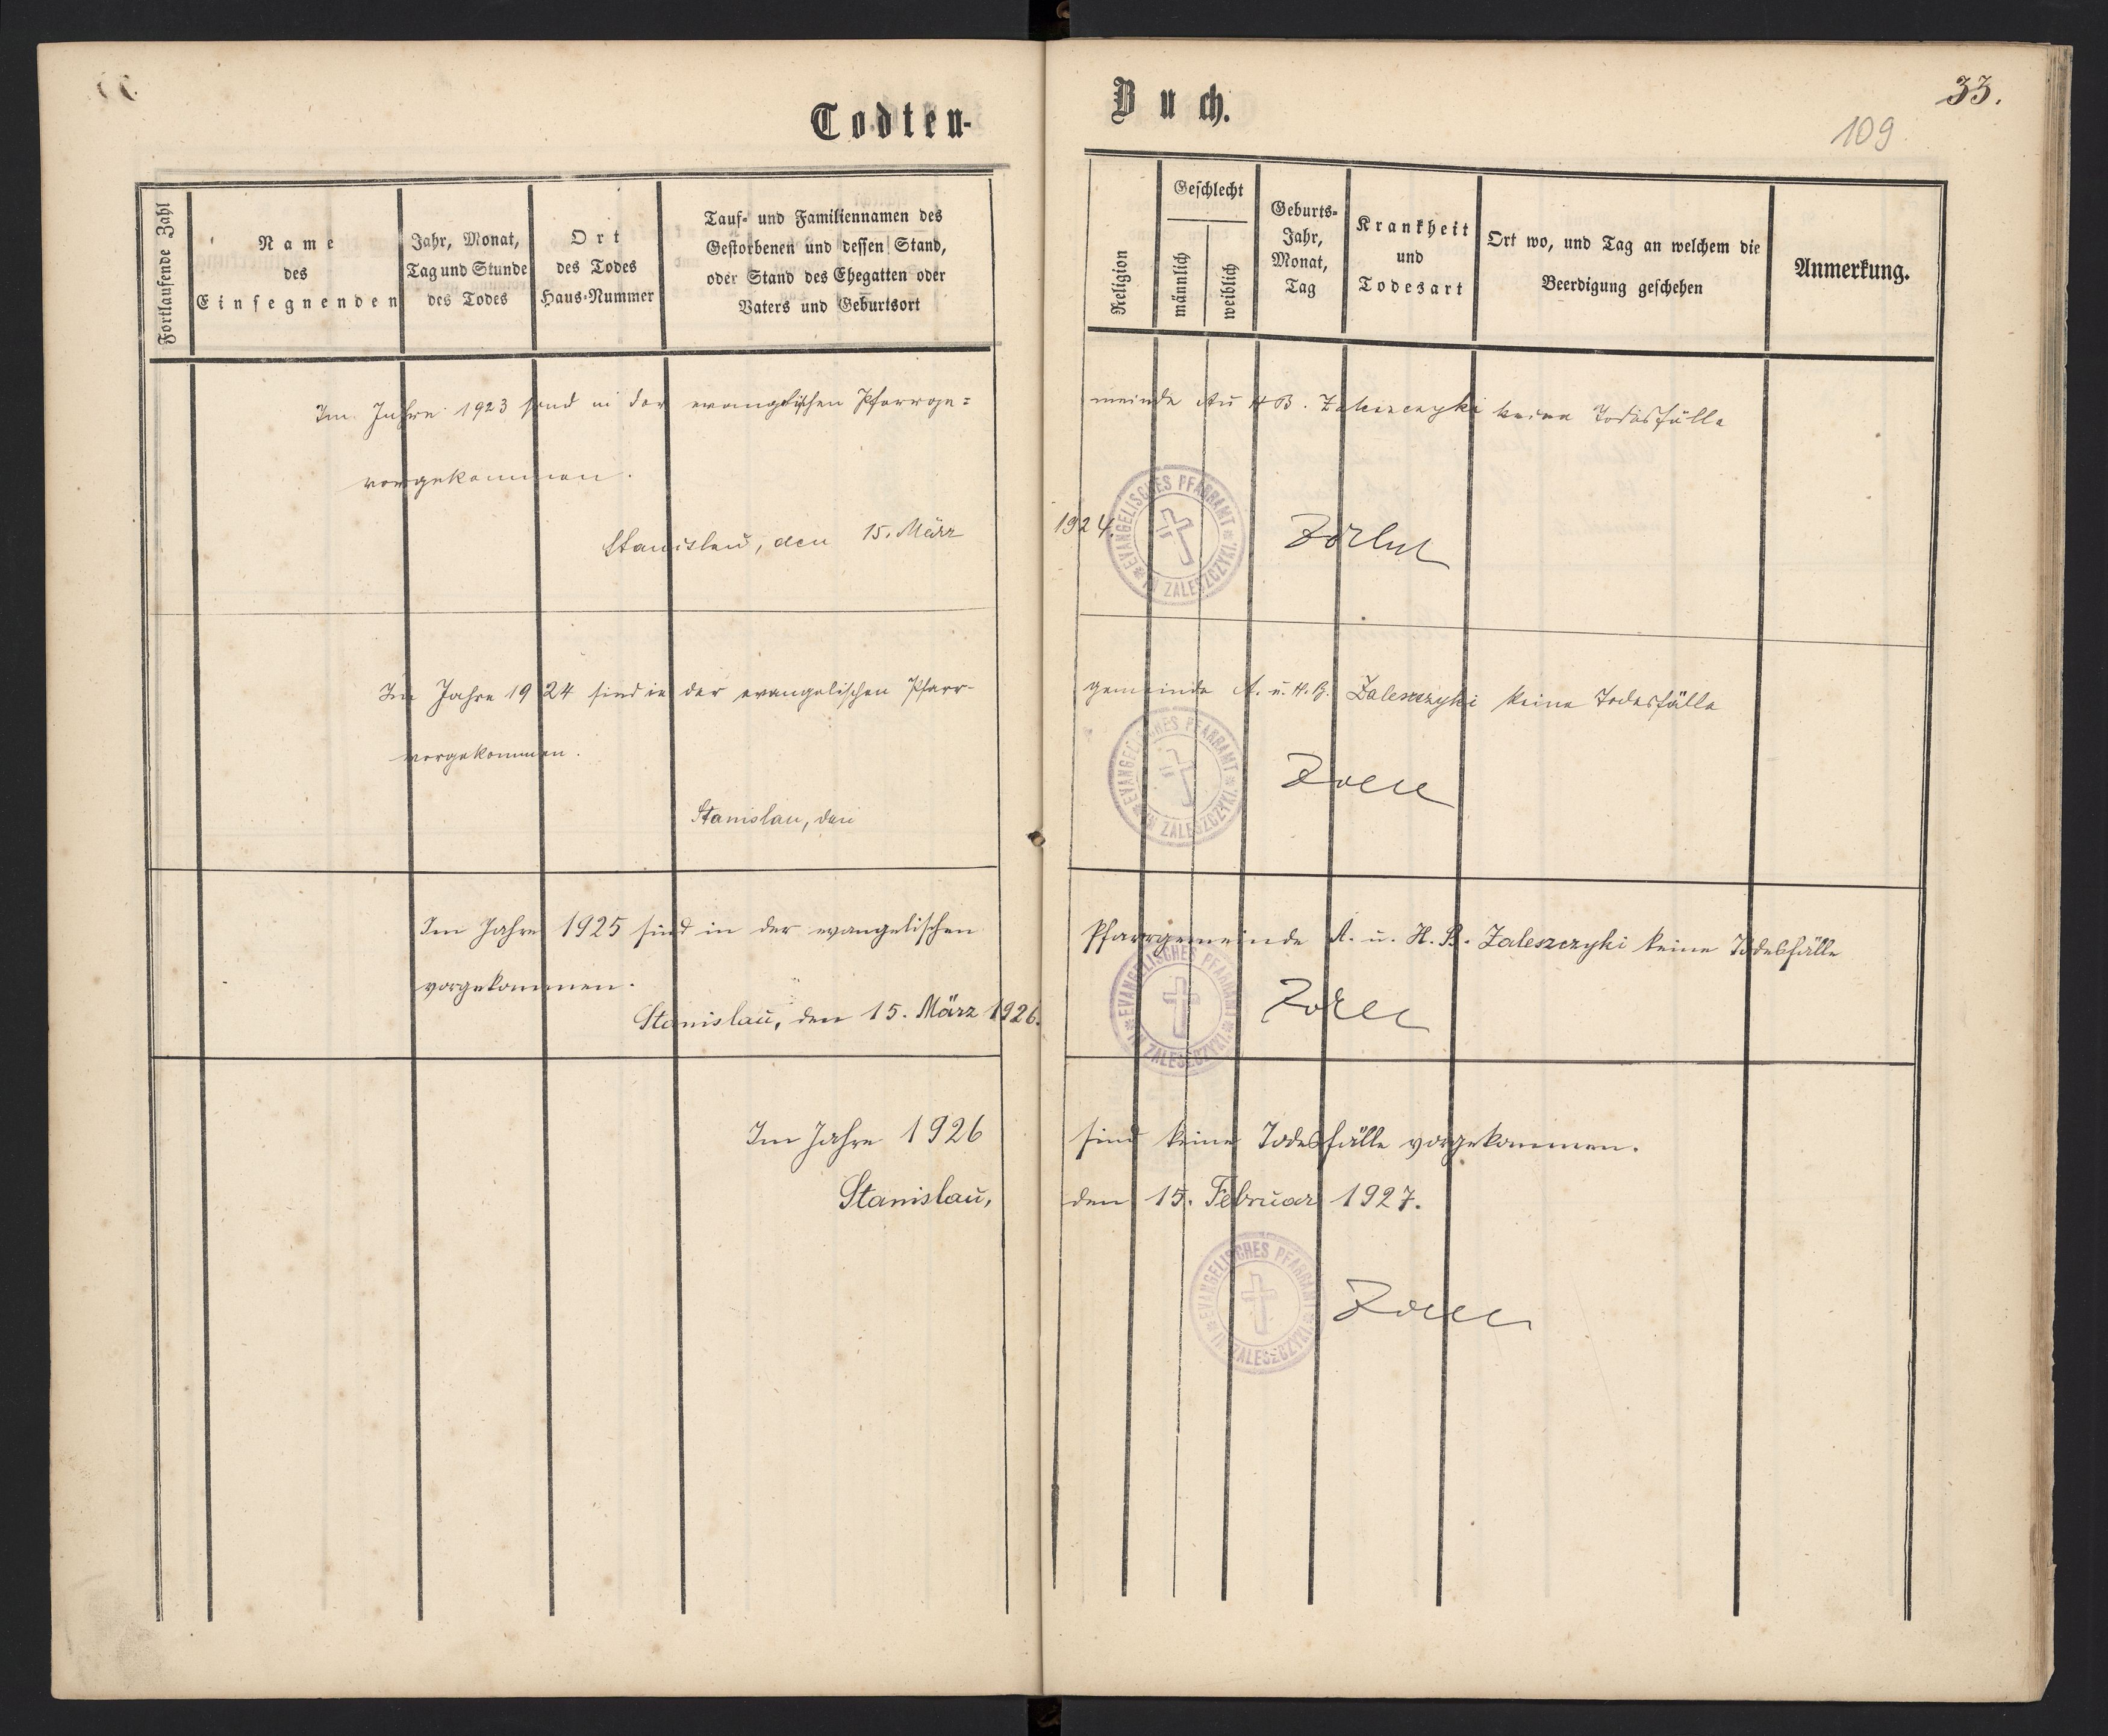 Todten-
Buch.
33.
109
Fortlaufende Zahl
Name
des
Einsegnenden
Jahr, Monat,
Tag und Stunde
des Todes
Ort
des Todes
Haus-Nummer
Tauf- und Familiennamen des
Gestorbenen und dessen Stand,
oder Stand des Ehegatten oder
Vaters und Geburtsort
Religion
Geschlecht
männlich
weiblich
Geburts-
Jahr,
Monat,
Tag
Krankheit
und
Todesart
Ort wo, und Tag an welchem die
Beerdigung geschehen
Anmerkung.
Im Jahre 1923 sind in der evangelischen Pfarrge= meinde A u H B. Zaleszczyki keine Todesfälle
vorgekommen.
Stanislau, den 15. März 1924.
EVANGELISCHES PFARRAMT
IN ZALESZCZYKI.
Im Jahre 1924 sind in der evangelischen Pfarr- gemeinde A. u. H. B. Zaleszczyki keine Todesfälle
vorgekommen.
Stanislau, den
EVANGELISCHES PFARRAMT
IN ZALESZCZYKI.
Im Jahre 1925 sind in der evangelischen Pfarrgemeinde A. u. H. B. Zaleszczyki keine Todesfälle
vorgekommen.
Stanislau, den 15. März 1926.
EVANGELISCHES PFARRAMT
IN ZALESZCZYKI.
Im Jahre 1926 sind keine Todesfälle vorgekommen.
Stanislau, den 15. Februar 1927.
EVANGELISCHES PFARRAMT
IN ZALESZCZYKI.